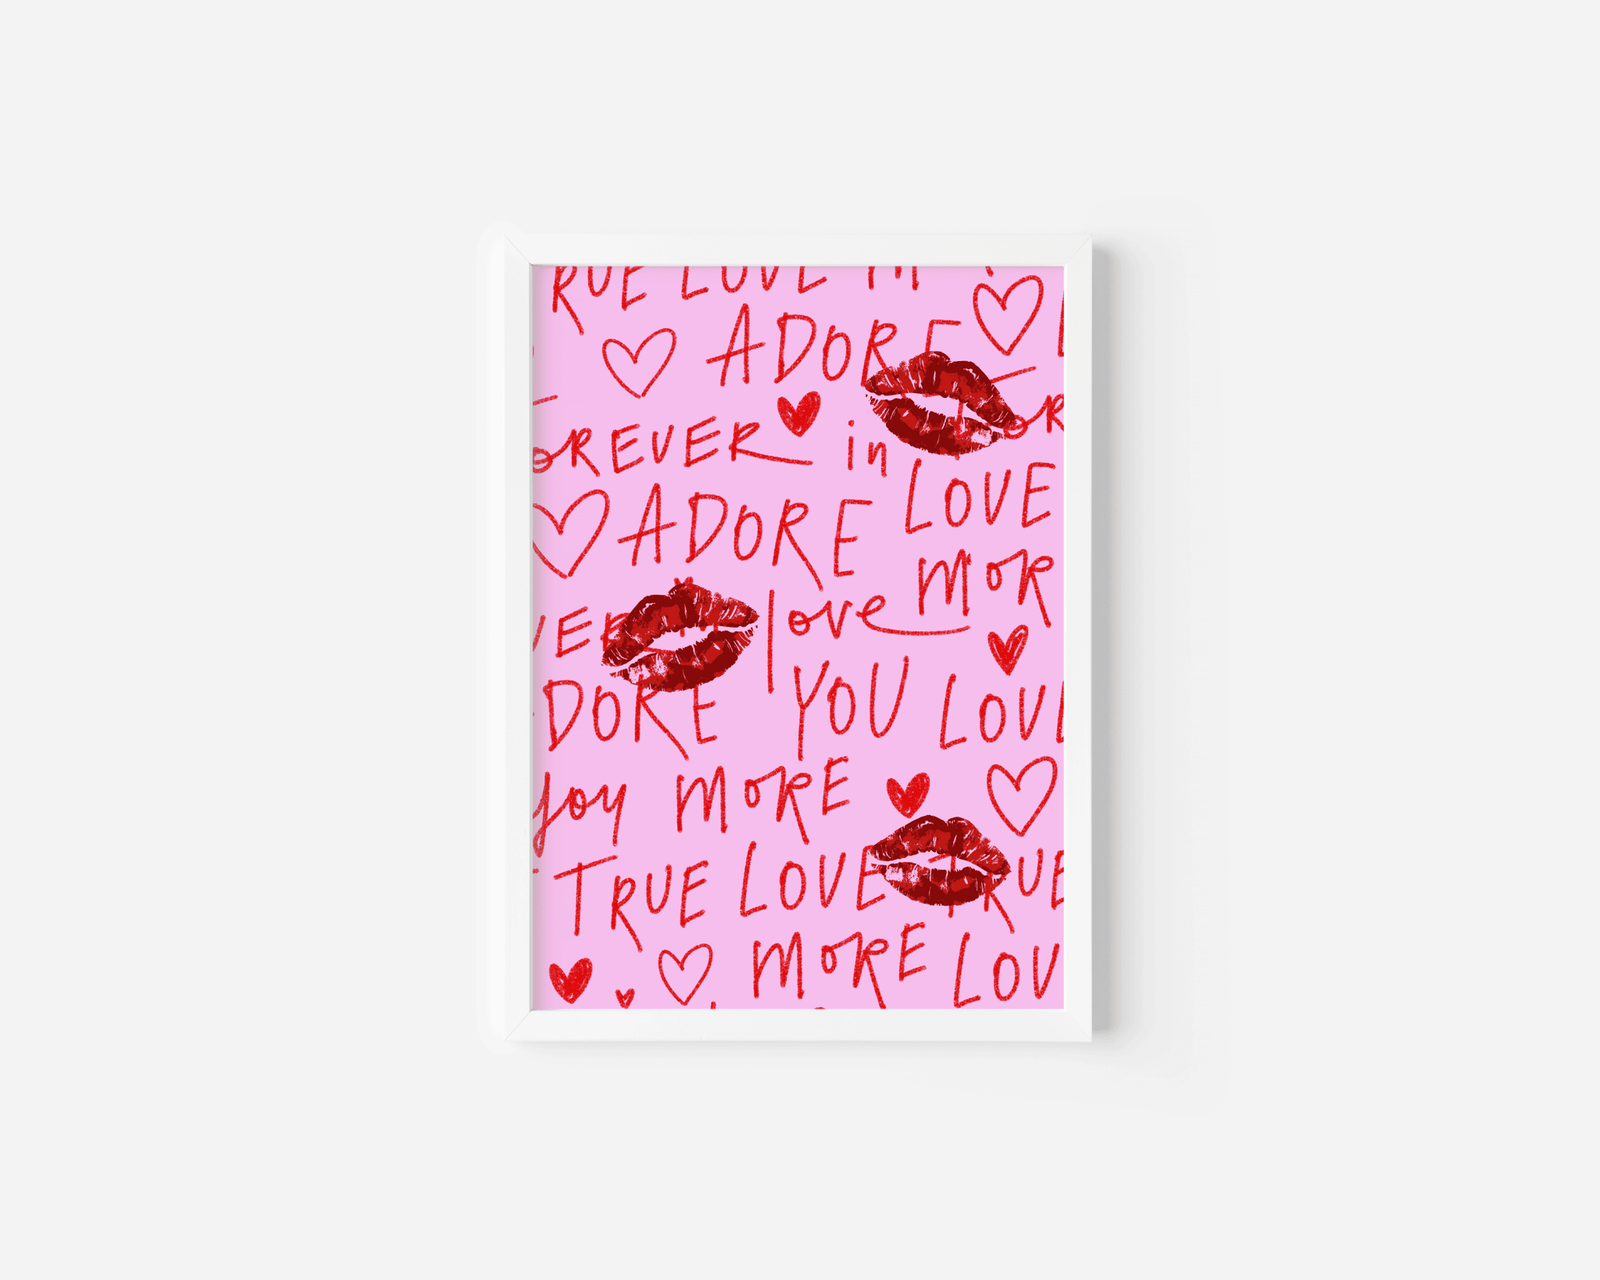 RUE LOVE M
ADORE
OREVER in OR
ADORE LOVE
love MOR
VER
DORE YOU LOVE
Joy MORE
TRUE LOVE TRUE
MORE LOV